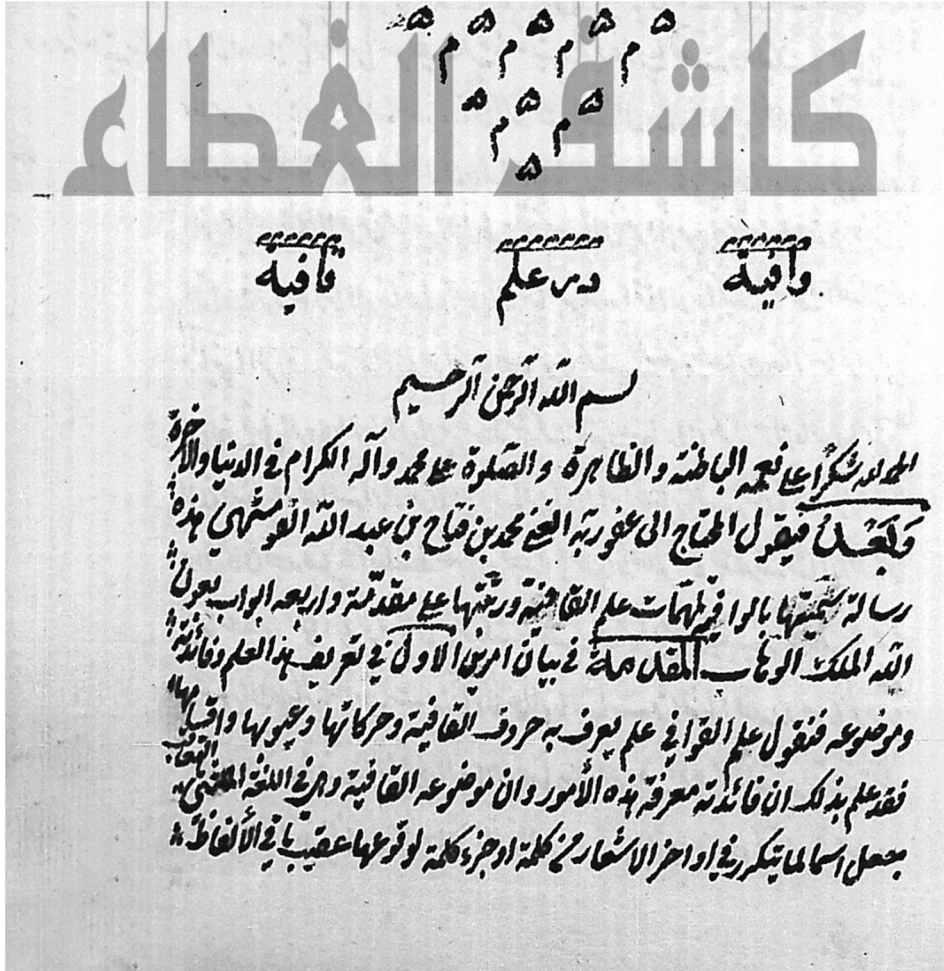 كاشف الغطاء
وافية در علم قافية
بسم الله الرحمن الرحيم
الحمد لله شكرًا على نعمه الباطنة والظاهرة والصلوة على محمد وآله الكرام في الدنيا والآخرة
وبعد فيقول المحتاج الى عفو ربه الغني محمد بن فتاح بن عبد الله هذه
رسالة سميتها بالوافية لمهمات علم القافية ورتبتها على مقدمة واربعه ابواب بعون
الله الملك الوهاب المقدمة في بيان امرين الاول في تعريف هذ العلم وفائدته
وموضوعه فنقول علم القوافي علم يعرف به حروف القافية وحركاتها وعيوبها واقسامها
فقد علم بذلك ان فائدته معرفة هذه الأمور وان موضوعه القافية وهى في اللغة
يجعل اسما لما يتكرر في اواخر الاشعار من كلمة او جزء كلمة لوقوعها في الألفاظ